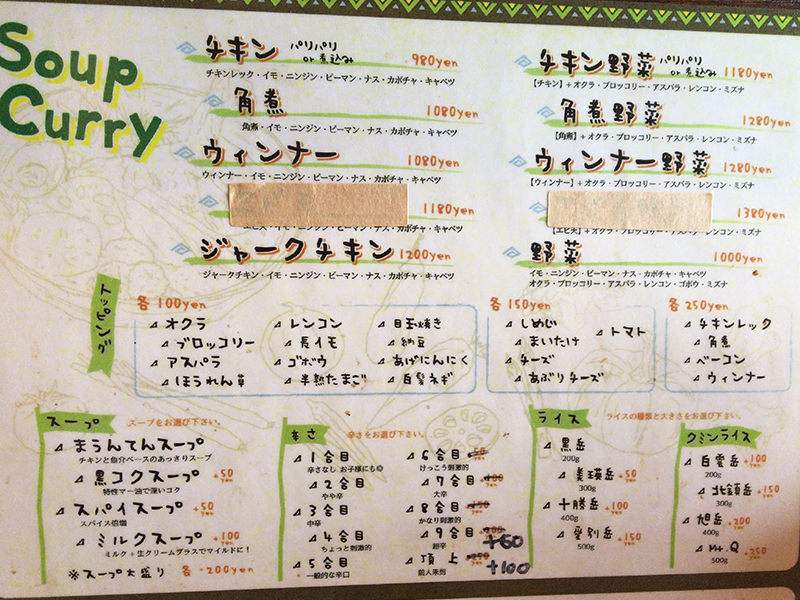 Soup
Curry
チキン パリパリ or 煮込み 980yen
チキンレック・イモ・ニンジン・ピーマン・ナス・カボチャ・キャベツ
角煮 1080yen
角煮・イモ・ニンジン・ピーマン・ナス・カボチャ・キャベツ
ウィンナー 1080yen
ウィンナー・イモ・ニンジン・ピーマン・ナス・カボチャ・キャベツ
1180yen
・イモ・ニンジン・ピーマン・ナス・カボチャ・キャベツ
ジャークチキン 1200yen
ジャークチキン・イモ・ニンジン・ピーマン・ナス・カボチャ・キャベツ
チキン野菜 パリパリ or 煮込み 1180yen
【チキン】+オクラ・ブロッコリー・アスパラ・レンコン・ミズナ
角煮野菜 1280yen
【角煮】+オクラ・ブロッコリー・アスパラ・レンコン・ミズナ
ウィンナー野菜 1280yen
【ウィンナー】+オクラ・ブロッコリー・アスパラ・レンコン・ミズナ
1380yen
+オクラ・ブロッコリー・アスパラ・レンコン・ミズナ
野菜 1000yen
イモ・ニンジン・ピーマン・ナス・カボチャ・キャベツ
オクラ・ブロッコリー・アスパラ・レンコン・ゴボウ・ミズナ
トッピング
各100yen
オクラ
ブロッコリー
アスパラ
ほうれん草
レンコン
長イモ
ゴボウ
半熟たまご
目玉焼き
納豆
あげにんにく
白髪ネギ
各150yen
しめじ
まいたけ
チーズ
あぶりチーズ
トマト
各250yen
チキンレック
角煮
ベーコン
ウィンナー
スープ スープをお選び下さい。
まうんてんスープ
チキンと魚介ベースのあっさりスープ
黒コクスープ +50yen
特性マー油で深いコク
スパイスープ +50yen
スパイス倍増
ミルクスープ +100yen
ミルク+生クリームプラスでマイルドに!
※スープ大盛り 各-200yen
辛さ 辛さをお選び下さい。
1合目
辛さなし お子様にも◎
2合目
やや辛
3合目
中辛
4合目
ちょっと刺激的
5合目
一般的な辛口
6合目
けっこう刺激的
7合目
大辛
8合目
かなり刺激的
9合目 +50
超辛
頂上 +100
前人未到
ライス ライスの種類と大きさをお選び下さい。
黒岳
200g
美瑛岳 +50yen
300g
十勝岳 +100yen
400g
愛別岳 +150yen
500g
クミンライス
白雲岳 +100yen
200g
北鎮岳 +150yen
300g
旭岳 +200yen
400g
Mt.Q +250yen
500g